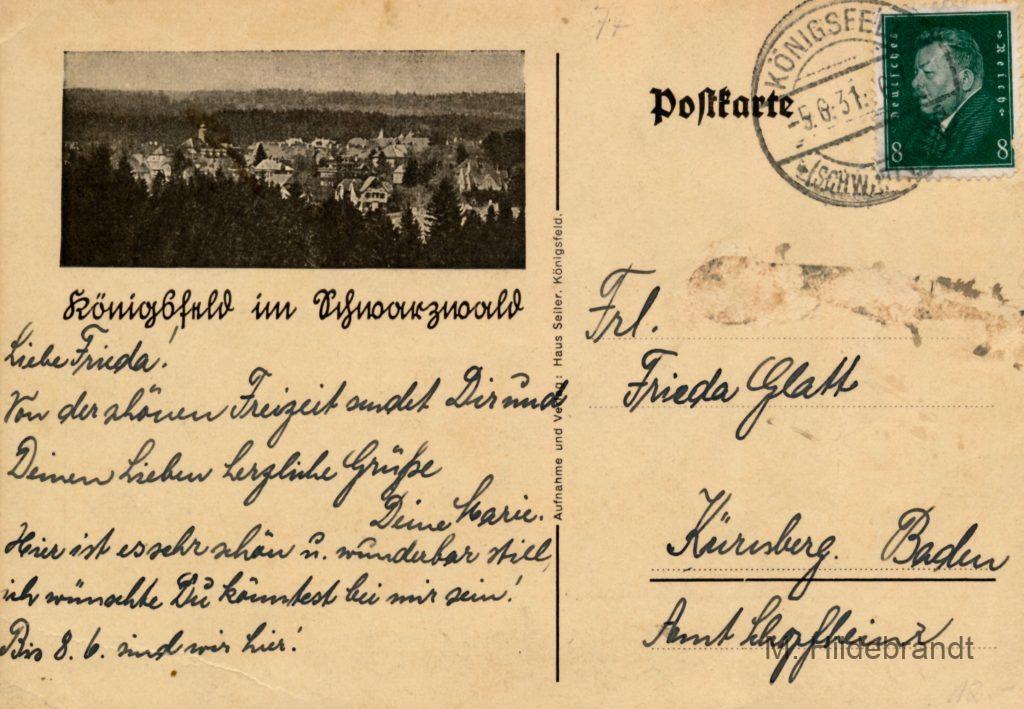 74
Postkarte
KÖNIGSFELD
-5.6.31.
(SCHWARZW.)
Deutsches Reich
8 8
Königsfeld im Schwarzwald
Liebe Frieda!
Von der schönen Freizeit sendet Dir und
Deinen Lieben herzliche Grüße
Deine Marie.
Hier ist es sehr schön u. wunderbar still,
ich wünschte Du könntest bei mir sein!
Bis 8. 6. sind wir hier!
Aufnahme und Verlag: Haus Seiler, Königsfeld.
Frl.
Frieda Glatt
Kürnberg. Baden
Amt Schopfheim
M. Hildebrandt